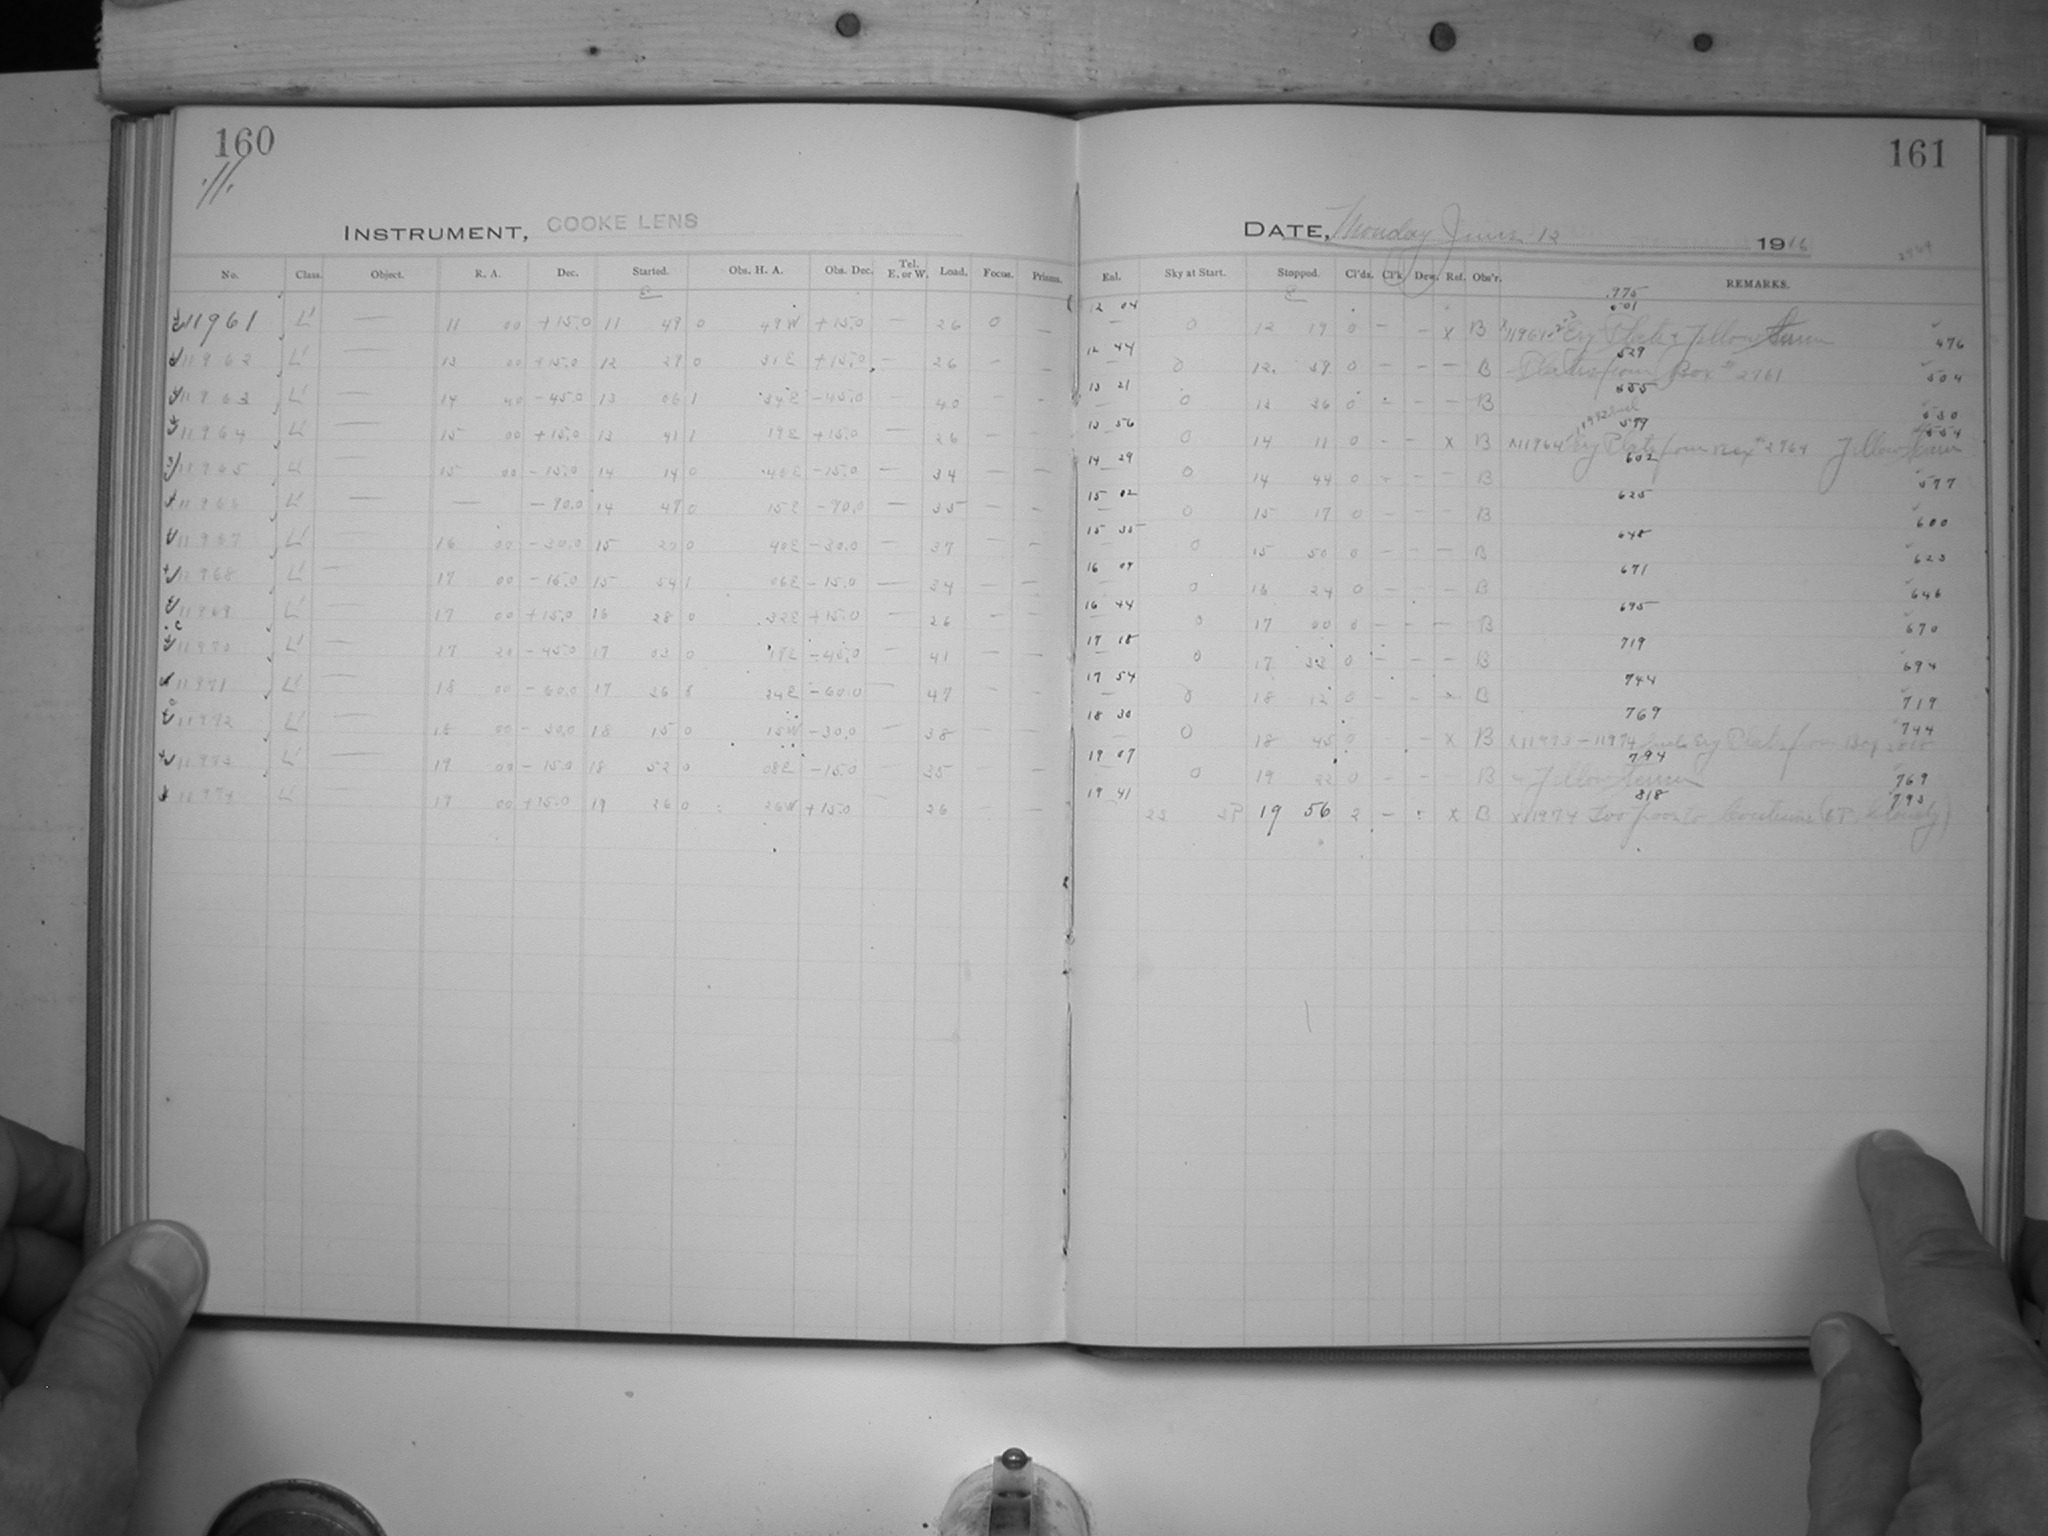 160
161
INSTRUMENT, COOKE LENS
DATE, Monday June 12 1916
2964
No. Class. Object. R. A. Dec. Started. Obs. H. A. Obs. Dec. Tel. E. or W. Load. Focus. Prisms.
Enl. Sky at Start. Stopped. Cl'ds. Cl'k. Dew. Ref. Obs'r. REMARKS.
11961 L' — 11 00 +15.0 11 49 0 49W +15.0 — 26 0 —
11962 L' — 13 00 +15.0 12 29 0 31E +15.0 — 26 — —
11963 L' — 14 40 -45.0 13 06 1 34E -45.0 — 40 — —
11964 L' — 15 00 +15.0 13 41 1 19E +15.0 — 26 — —
11965 L' — 15 00 -15.0 14 14 0 -15.0 — 34 — —
11966 L' — — -90.0 14 47 0 15E -90.0 — 35 — —
11967 L' — 16 00 -30.0 15 20 0 40E -30.0 — 37 — —
11968 L' — 17 00 -15.0 15 54 1 06E -15.0 — 34 — —
11969 L' — 17 00 +15.0 16 28 0 32E +15.0 — 26 — —
11970 L' — 17 20 -45.0 17 03 0 17E -45.0 — 41 — —
11971 L' — 18 00 -60.0 17 36 8 24E -60.0 — 47 — —
11972 L' — 18 00 -30.0 18 15 0 15W -30.0 — 38 — —
11973 L' — 19 00 -15.0 18 52 0 08E -15.0 — 35 — —
11974 L' — 19 00 +15.0 19 26 0 26W +15.0 — 26
.775
501
12 04 — 0 12 19 0 — — x B x11961 Plate & Yellow Screen 476
529
12 44 — 0 12 59 0 — — — B Plates from Box # 2961 504
555
13 21 — 0 13 36 0 — — — B 530
579
13 56 — 0 14 11 0 — — x B x11964 Plate from Box # 2964 Yellow Screen 554
602
14 29 — 0 14 44 0 — — — B 577
625
15 02 — 0 15 17 0 — — — B 600
648
15 35 — 0 15 50 0 — — — B 623
671
16 09 — 0 16 24 0 — — — B 646
695
16 44 — 0 17 00 0 — — — B 670
719
17 18 — 0 17 33 0 — — — B 694
744
17 54 — 0 18 12 0 — — B 719
769
18 30 — 0 18 45 0 — — x B x11973 - 11974 Plate from Box 744
794
19 07 — 0 19 22 0 — — — B & Yellow Screen 769
818
19 41 19 56 2 — x B x11974 Too poor to Continue (cloudy) 793